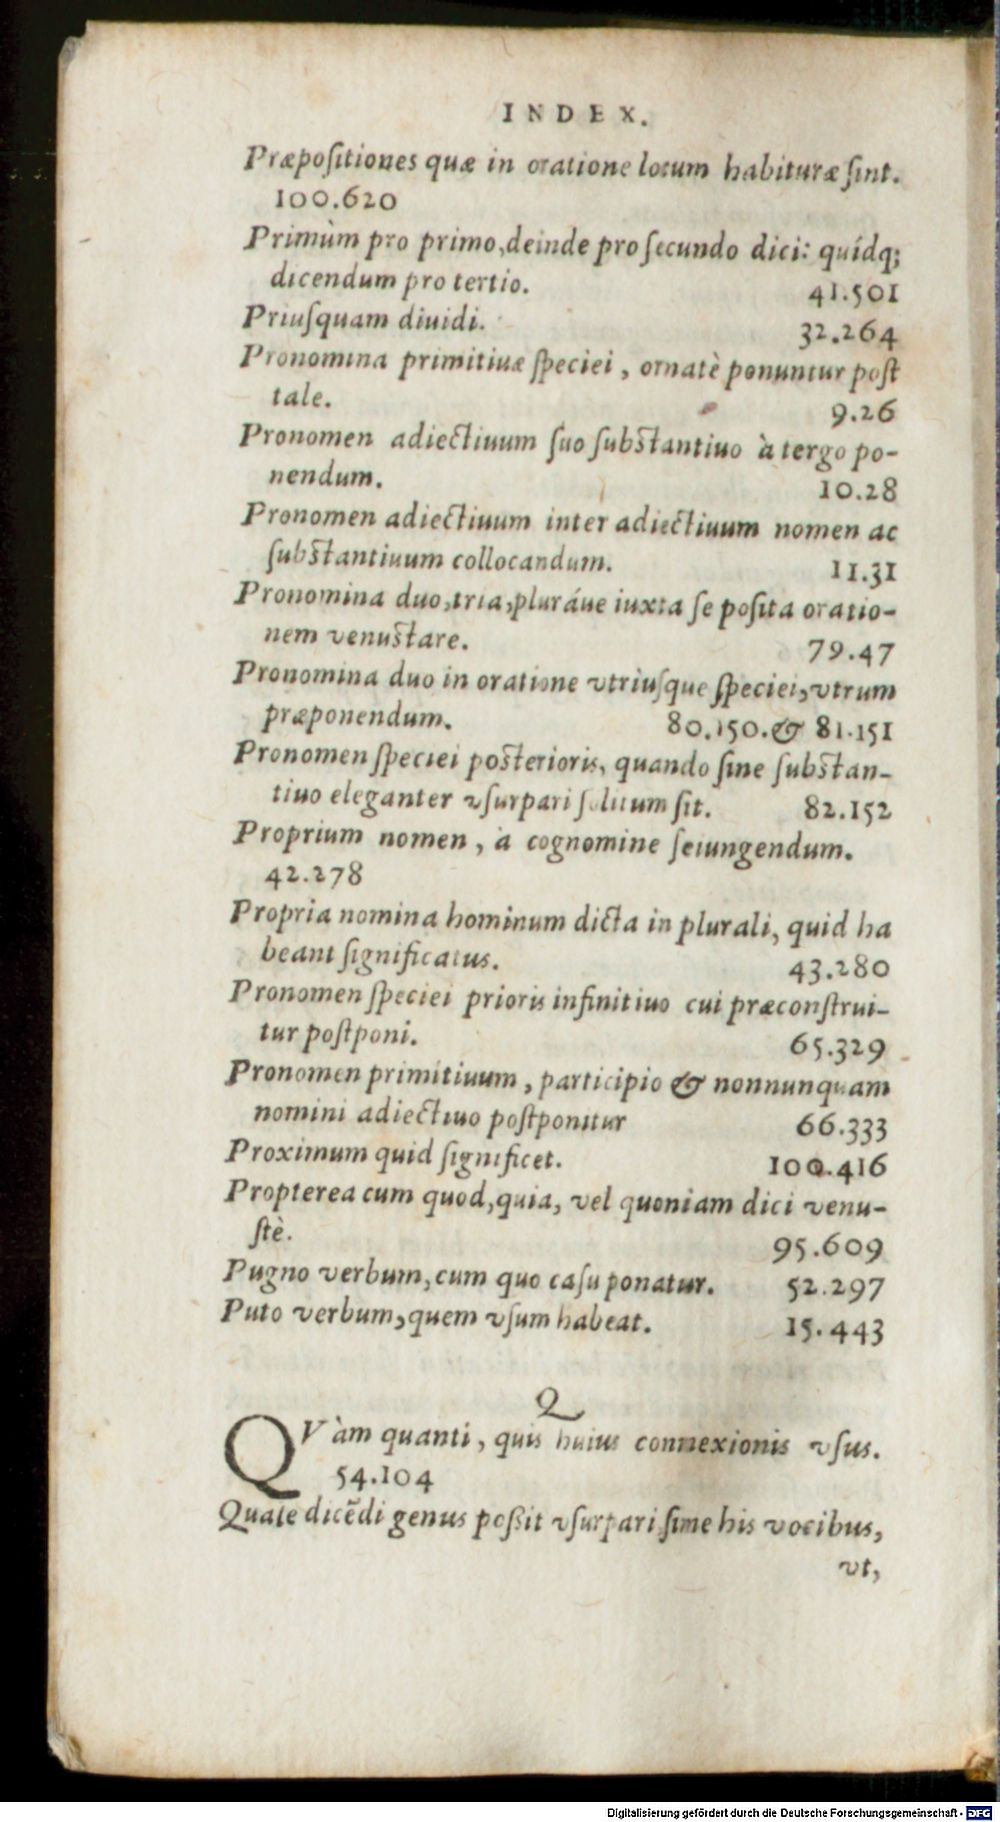 INDEX.
Præpositiones quæ in oratione locum habituræ sint.
100.620
Primùm pro primo, deinde pro secundo dici: quídq;
dicendum pro tertio. 41.501
Priusquam diuidi. 32.264
Pronomina primitiuæ speciei, ornatè ponuntur post
tale. 9.26
Pronomen adiectiuum suo substantiuo à tergo po-
nendum. 10.28
Pronomen adiectiuum inter adiectiuum nomen ac
substantiuum collocandum. 11.31
Pronomina duo, tria, pluráue iuxta se posita oratio-
nem venustare. 79.47
Pronomina duo in oratione vtriusque speciei, vtrum
præponendum. 80.150. & 81.151
Pronomen speciei posterioris, quando sine substan-
tiuo eleganter vsurpari solitum sit. 82.152
Proprium nomen, à cognomine seiungendum.
42.278
Propria nomina hominum dicta in plurali, quid ha
beant significatus. 43.280
Pronomen speciei prioris infinitiuo cui præconstrui-
tur postponi. 65.329
Pronomen primitiuum, participio & nonnunquam
nomini adiectiuo postponitur 66.333
Proximum quid significet. 100.416
Propterea cum quod, quia, vel quoniam dici venu-
stè. 95.609
Pugno verbum, cum quo casu ponatur. 52.297
Puto verbum, quem vsum habeat. 15.443
Q
QVàm quanti, quis huius connexionis vsus.
54.104
Quale dicēdi genus possit vsurpari sine his vocibus,
vt,
Digitalisierung gefördert durch die Deutsche Forschungsgemeinschaft - DFG